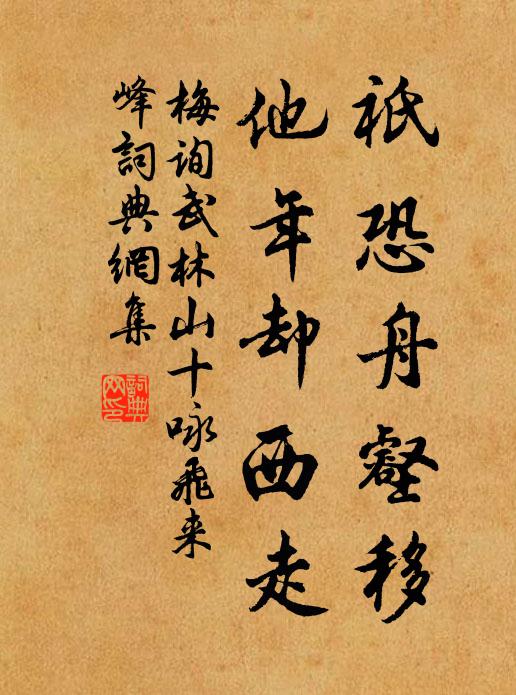 祇恐舟壑移
他年却西走
梅询武林山十咏飛来
峰詞典網集
詞典网印